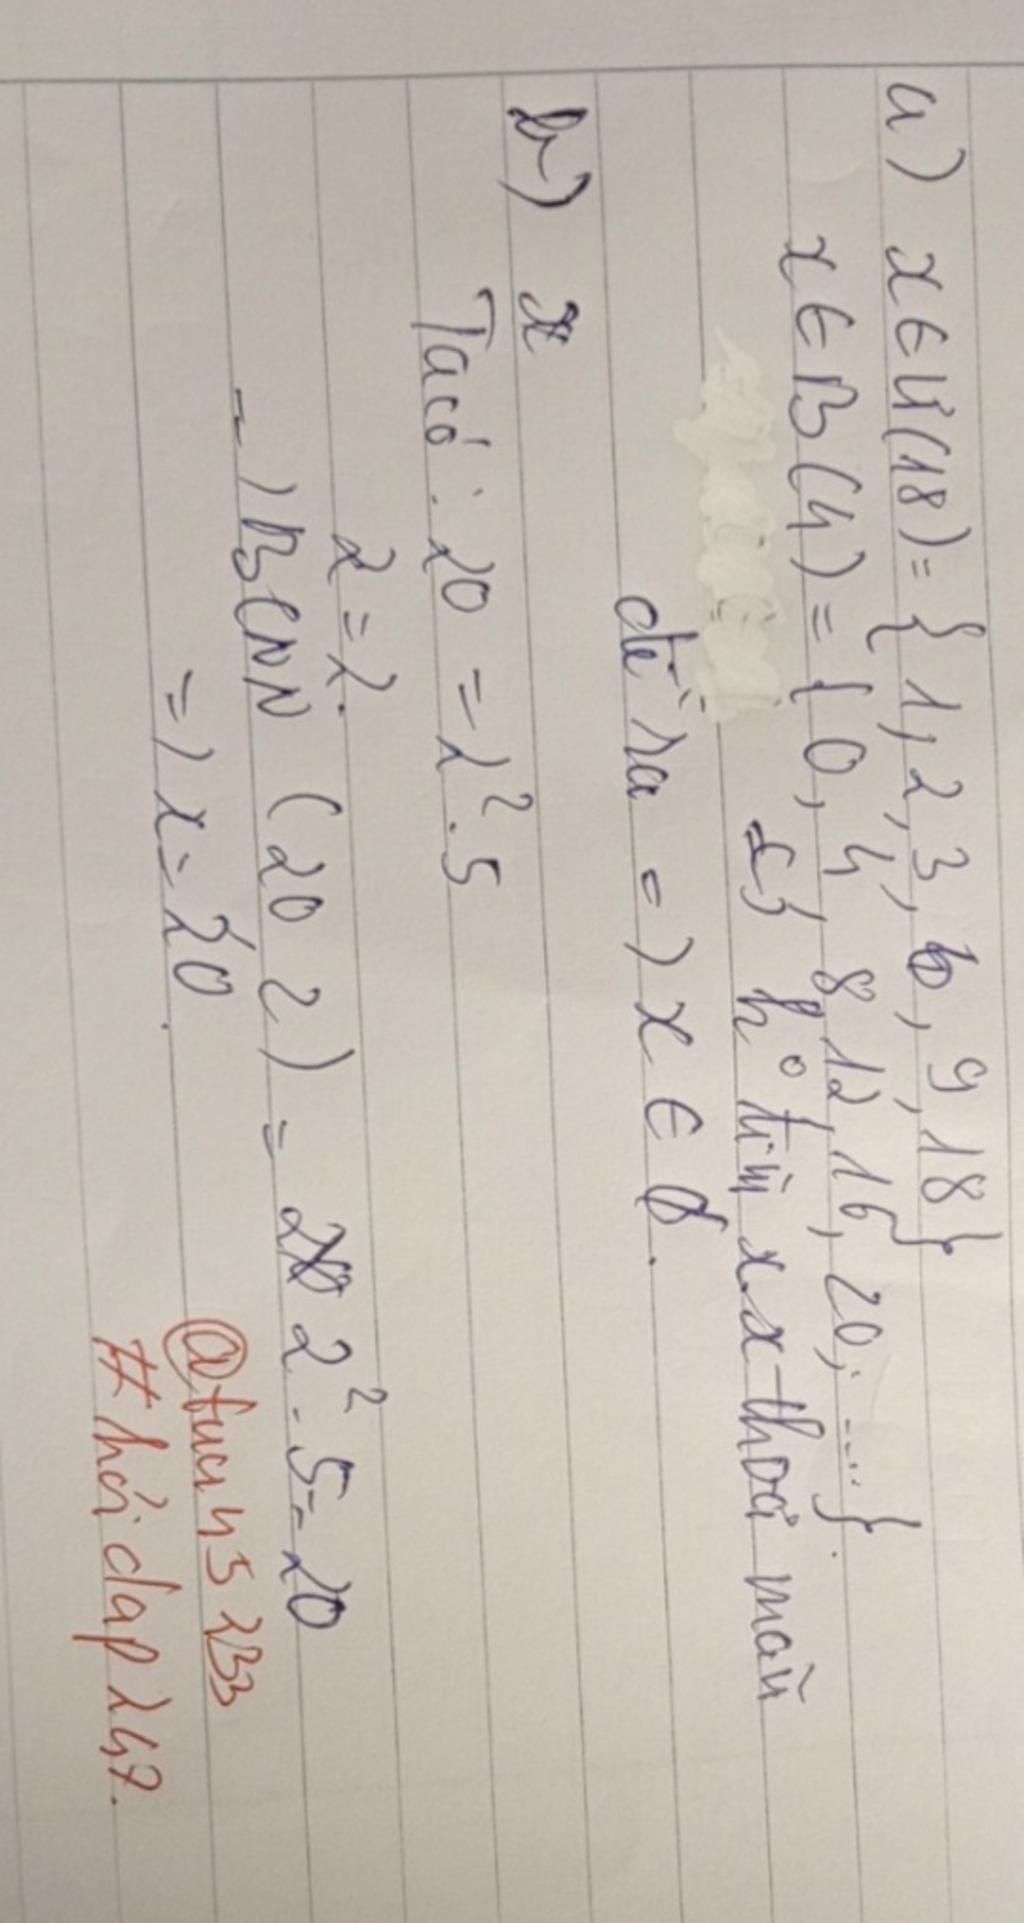 a) x ∈ Ư(18) = { 1, 2, 3, 6, 9, 18 }
x ∈ B(4) = { 0, 4, 8, 12, 16, 20, .... }.
k° tìm x x thoả mãn
đề ra => x ∈ ∅.
b) x
Ta có : 20 = 2². 5
2 = 2.
=) BCNN (20 2) = 2². 5 = 20
=) x = 20
@fuc45233
# hỏi dap 247.